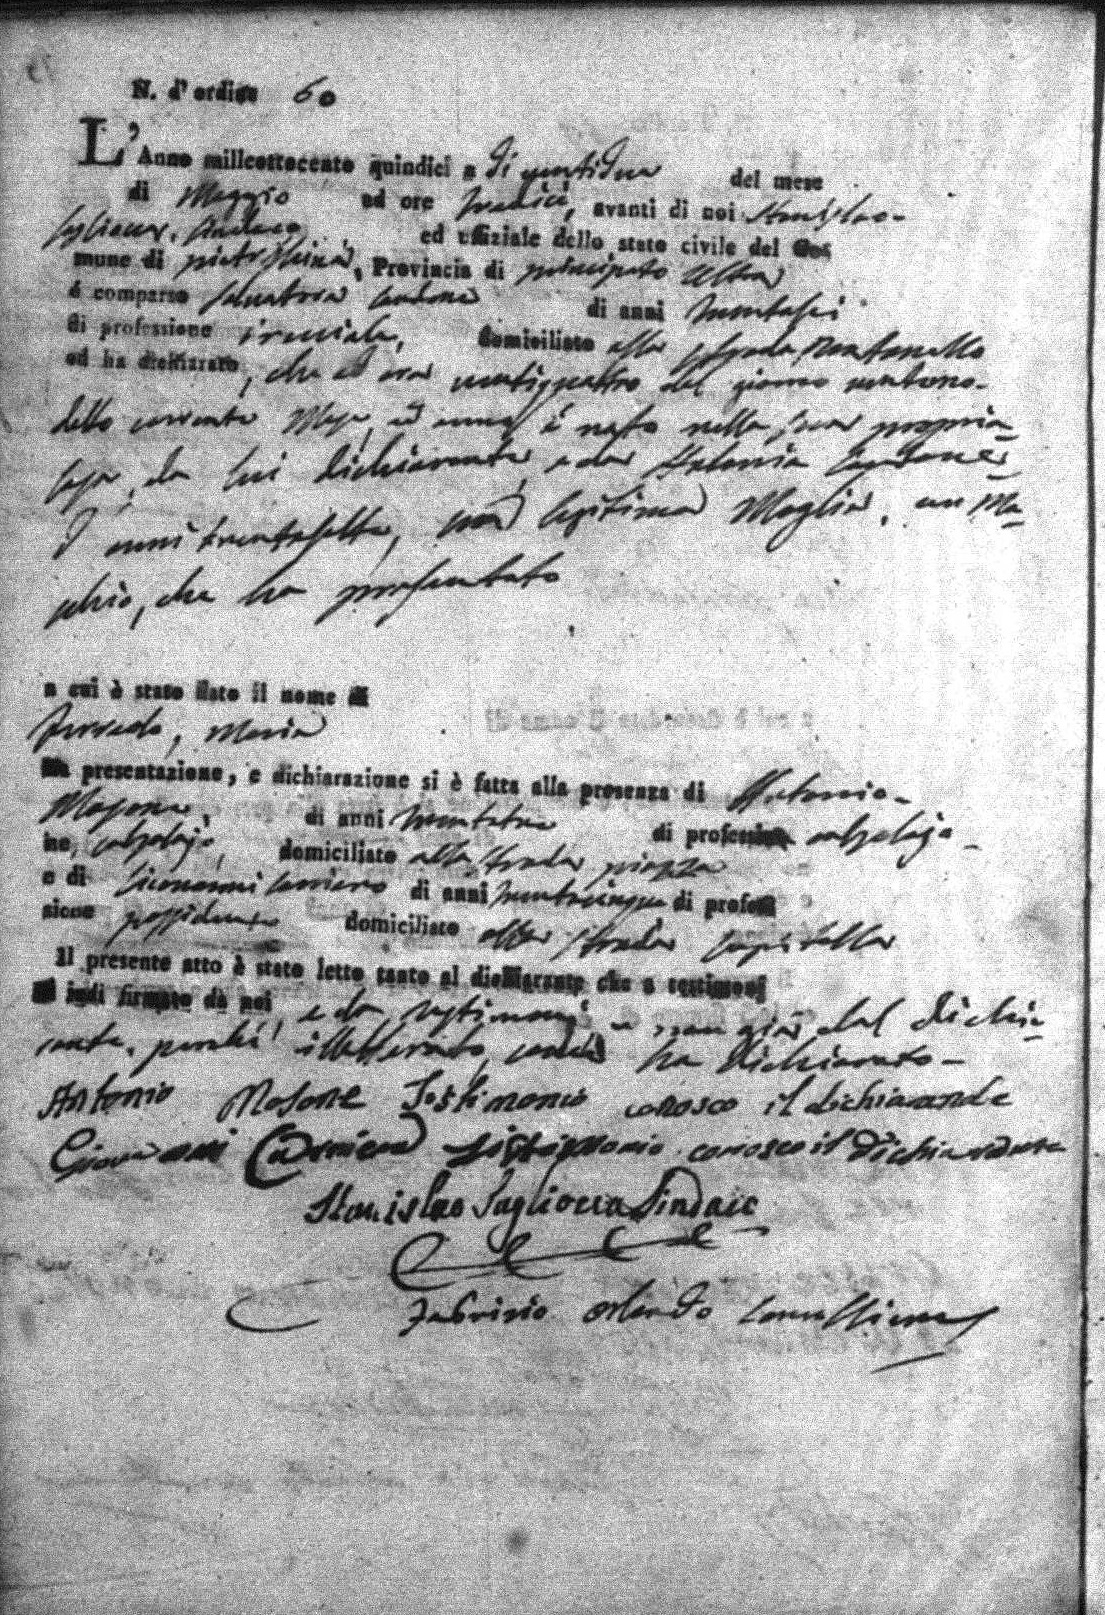 N. d'ordine 60
L'Anno millеottocento quindici a dì ventidue del mese
di Maggio ad ore tredici, avanti di noi Stanislao
Tagliacca, Sindaco ed uffiziale dello stato civile del Co=
mune di, Provincia di principato Ultra
è comparso Salvatore Cardone di anni trentasei
di professione, domiciliato alla strada
ed ha dichiarato, che ad ora ventiquattro del giorno ventuno
dello corrente Mese, ed anno è nato nella sua propria
casa, da lui dichiarante, e da Cardone
d'anni trentasette, sua legittima Moglie, un Ma=
schio, che ha presentato
a cui è stato dato il nome di
Maria
La presentazione, e dichiarazione si è fatta alla presenza di Antonio
Masone, di anni trentatre di professio
ne, calzolajo, domiciliato alla strada piazza
e di Giovanni Carriero di anni trentacinque di profes
sione possidente domiciliato alla strada
Il presente atto è stato letto tanto al dichiarante che a testimonj
ed indi firmato da noi, e da testimonj, e non già dal dichia=
rante, perché illetterato, come ha dichiarato
Antonio Masone Testimonio conosco il dichiarante
Giovanni testimonio conosco il dichiarante
Stanislao Tagliacca Sindaco
Fabrizio Orlando Cancelliere